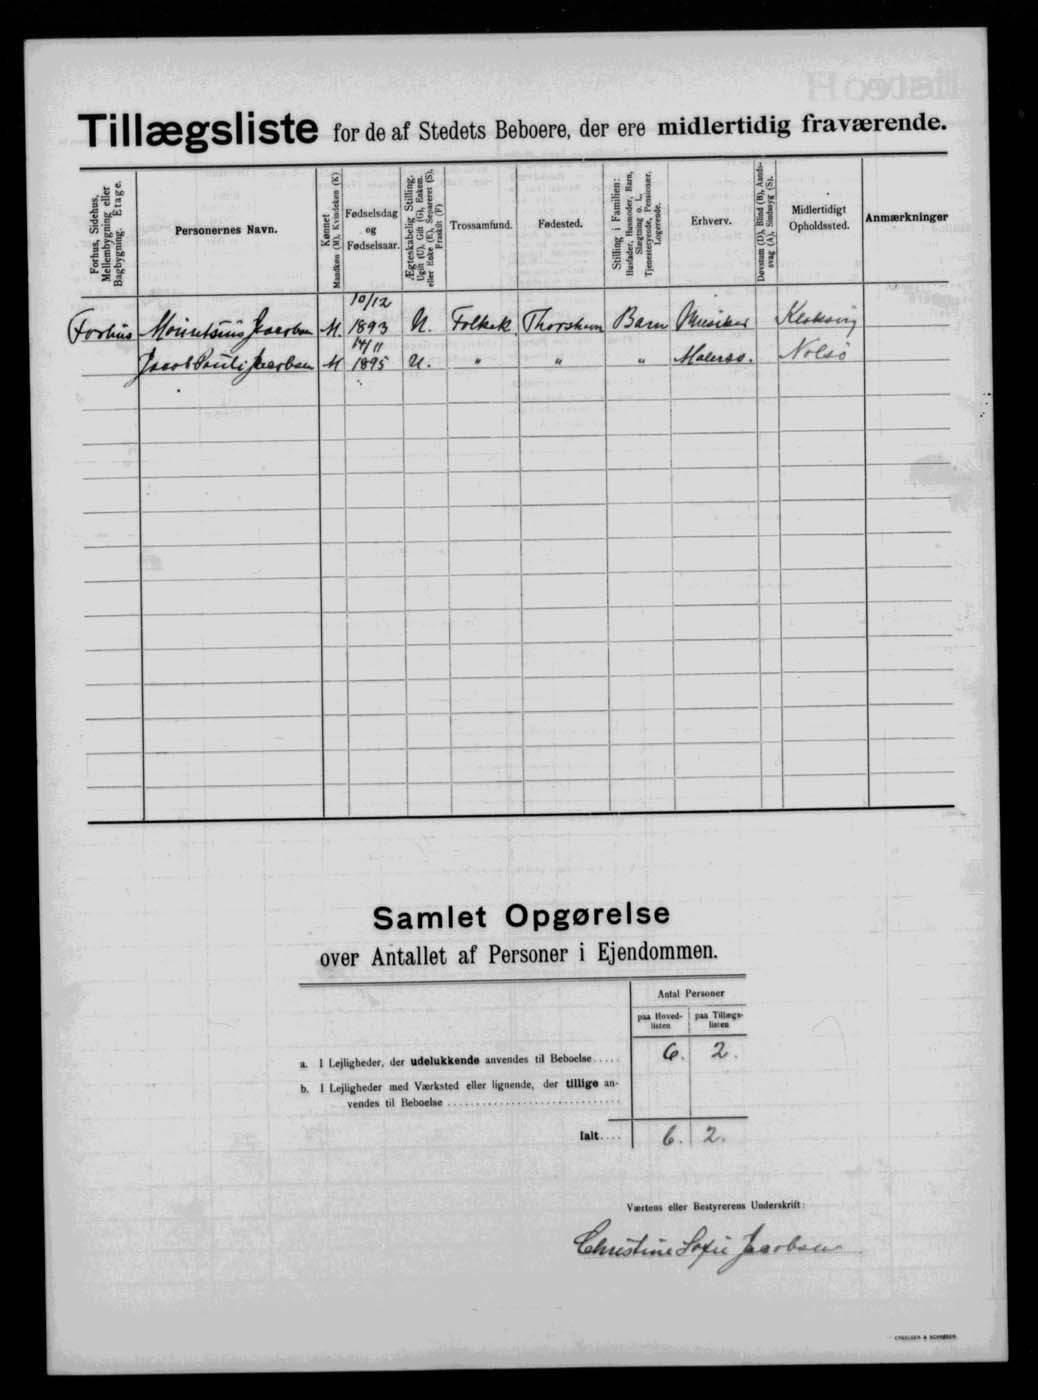 Tillægsliste for de af Stedets Beboere, der ere midlertidig fraværende.
Forhus, Sidehus, Mellembygning eller Bagbygning. Etage.
Personernes Navn.
Kønnet Mandkøn (M), Kvindekøn (K)
Fødselsdag og Fødselsaar.
Ægteskabelig Stilling. Ugift (U), Gift (G), Enkem. eller Enke (E), Separeret (S), Fraskilt (F)
Trossamfund.
Fødested.
Stilling i Familien: Husfader, Husmoder, Barn, Slægtning o. l., Tjenestetyende, Pensionær, Logerende.
Erhverv.
Døvstum (D), Blind (B), Aandssvag (A), Sindssyg (S).
Midlertidigt Opholdssted.
Anmærkninger
10/12
Forhus Jacobsen M. 1893 U. Folkek. Thorshavn Barn Musiker Klaksvig
14/11
Jacob Pauli Jacobsen M 1895 U. " " " Malersv. Nolsö
Samlet Opgørelse
over Antallet af Personer i Ejendommen.
Antal Personer
paa Hovedlisten
paa Tillægslisten
a. I Lejligheder, der udelukkende anvendes til Beboelse..... 6. 2.
b. I Lejligheder med Værksted eller lignende, der tillige an-
vendes til Beboelse
Ialt.... 6. 2.
Værtens eller Bestyrerens Underskrift:
Christine Sofie Jacobsen